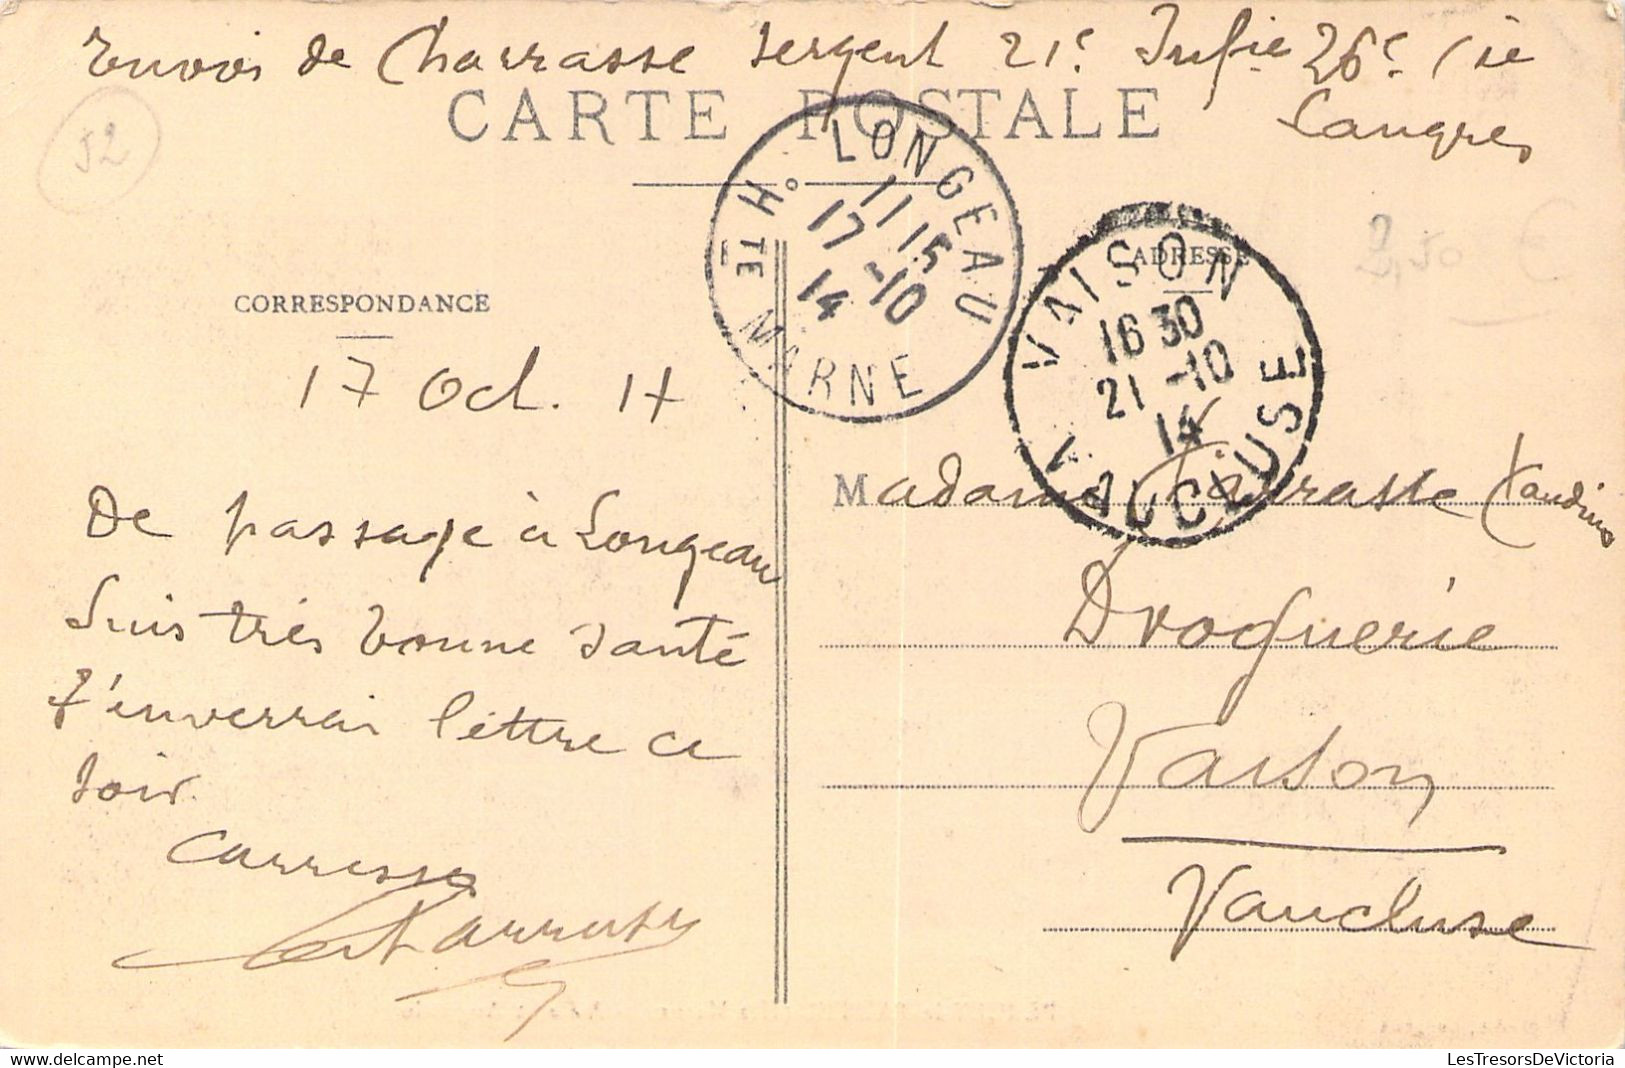 Envoi de Charrasse Sergent 21e Infie 26e Cie
Langres
CARTE POSTALE
52
LONGEAU
11 15
17 -10
14
Hte MARNE
VAISON
16 30
21 -10
14
VAUCLUSE
ADRESSE
2,50 €
CORRESPONDANCE
17 Oct. 14
De passage à Longeau
Suis très bonne santé
T'enverrai lettre ce
soir.
Carresse
Charrasse
Madame Charrasse
Droguerie
Vaison
Vaucluse
LesTresorsDeVictoria